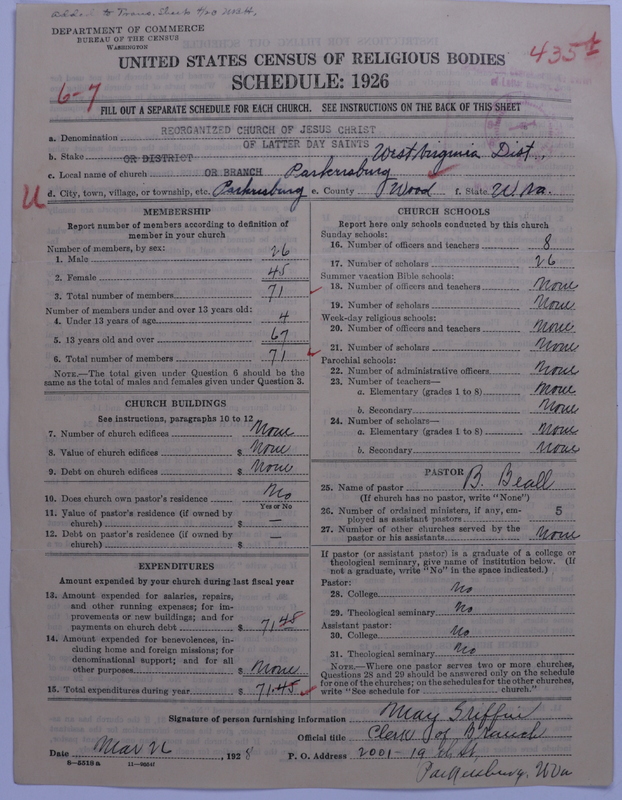 Added to Trans. Sheet
DEPARTMENT OF COMMERCE
BUREAU OF THE CENSUS
WASHINGTON
435
UNITED STATES CENSUS OF RELIGIOUS BODIES
SCHEDULE: 1926
6-7
FILL OUT A SEPARATE SCHEDULE FOR EACH CHURCH. SEE INSTRUCTIONS ON THE BACK OF THIS SHEET
REORGANIZED CHURCH OF JESUS CHRIST
a. Denomination
OF LATTER DAY SAINTS
b. Stake OR DISTRICT West Virginia Dist.
c. Local name of church OR BRANCH Parkersburg
U d. City, town, village, or township, etc. Parkersburg e. County Wood f. State W Va.
MEMBERSHIP
Report number of members according to definition of
member in your church
Number of members, by sex:
1. Male 26
2. Female 45
3. Total number of members 71
Number of members under and over 13 years old:
4. Under 13 years of age 4
5. 13 years old and over 67
6. Total number of members 71
NOTE.—The total given under Question 6 should be
same as the total of males and females given under Question 3.
CHURCH BUILDINGS
See instructions, paragraphs 10 to 12
7. Number of church edifices None
8. Value of church edifices $ None
9. Debt on church edifices $ None
10. Does church own pastor's residence No
Yes or No
11. Value of pastor's residence (if owned by
church) $ —
12. Debt on pastor's residence (if owned by
church) $ —
EXPENDITURES
Amount expended by your church during last fiscal year
13. Amount expended for salaries, repairs,
and other running expenses; for im-
provements or new buildings; and for
payments on church debt $ 71.45
14. Amount expended for benevolences, in-
cluding home and foreign missions; for
denominational support; and for all
other purposes $ None
15. Total expenditures during year $ 71.45
CHURCH SCHOOLS
Report here only schools conducted by this church
Sunday schools:
16. Number of officers and teachers 8
17. Number of scholars 26
Summer vacation Bible schools:
18. Number of officers and teachers None
19. Number of scholars None
Week-day religious schools:
20. Number of officers and teachers None
21. Number of scholars None
Parochial schools:
22. Number of administrative officers None
23. Number of teachers—
a. Elementary (grades 1 to 8) None
b. Secondary None
24. Number of scholars—
a. Elementary (grades 1 to 8) None
b. Secondary None
PASTOR
25. Name of pastor B. Beall
(If church has no pastor, write "None")
26. Number of ordained ministers, if any, em-
ployed as assistant pastors 5
27. Number of other churches served by the
pastor or his assistants None
If pastor (or assistant pastor) is a graduate of a college or
theological seminary, give name of institution below. (If
not a graduate, write "No" in the space indicated.)
Pastor:
28. College No
29. Theological seminary No
Assistant pastor:
30. College No
31. Theological seminary No
NOTE.—Where one pastor serves two or more churches,
Questions 28 and 29 should be answered only on the schedule
for one of the churches; on the schedules for the other churches,
write "See schedule for church."
Signature of person furnishing information May Griffin
Official title Clerk of Branch
Date Mar 26, 1928 P. O. Address 2001-19th St,
8-5519 a
Parkersburg, W Va